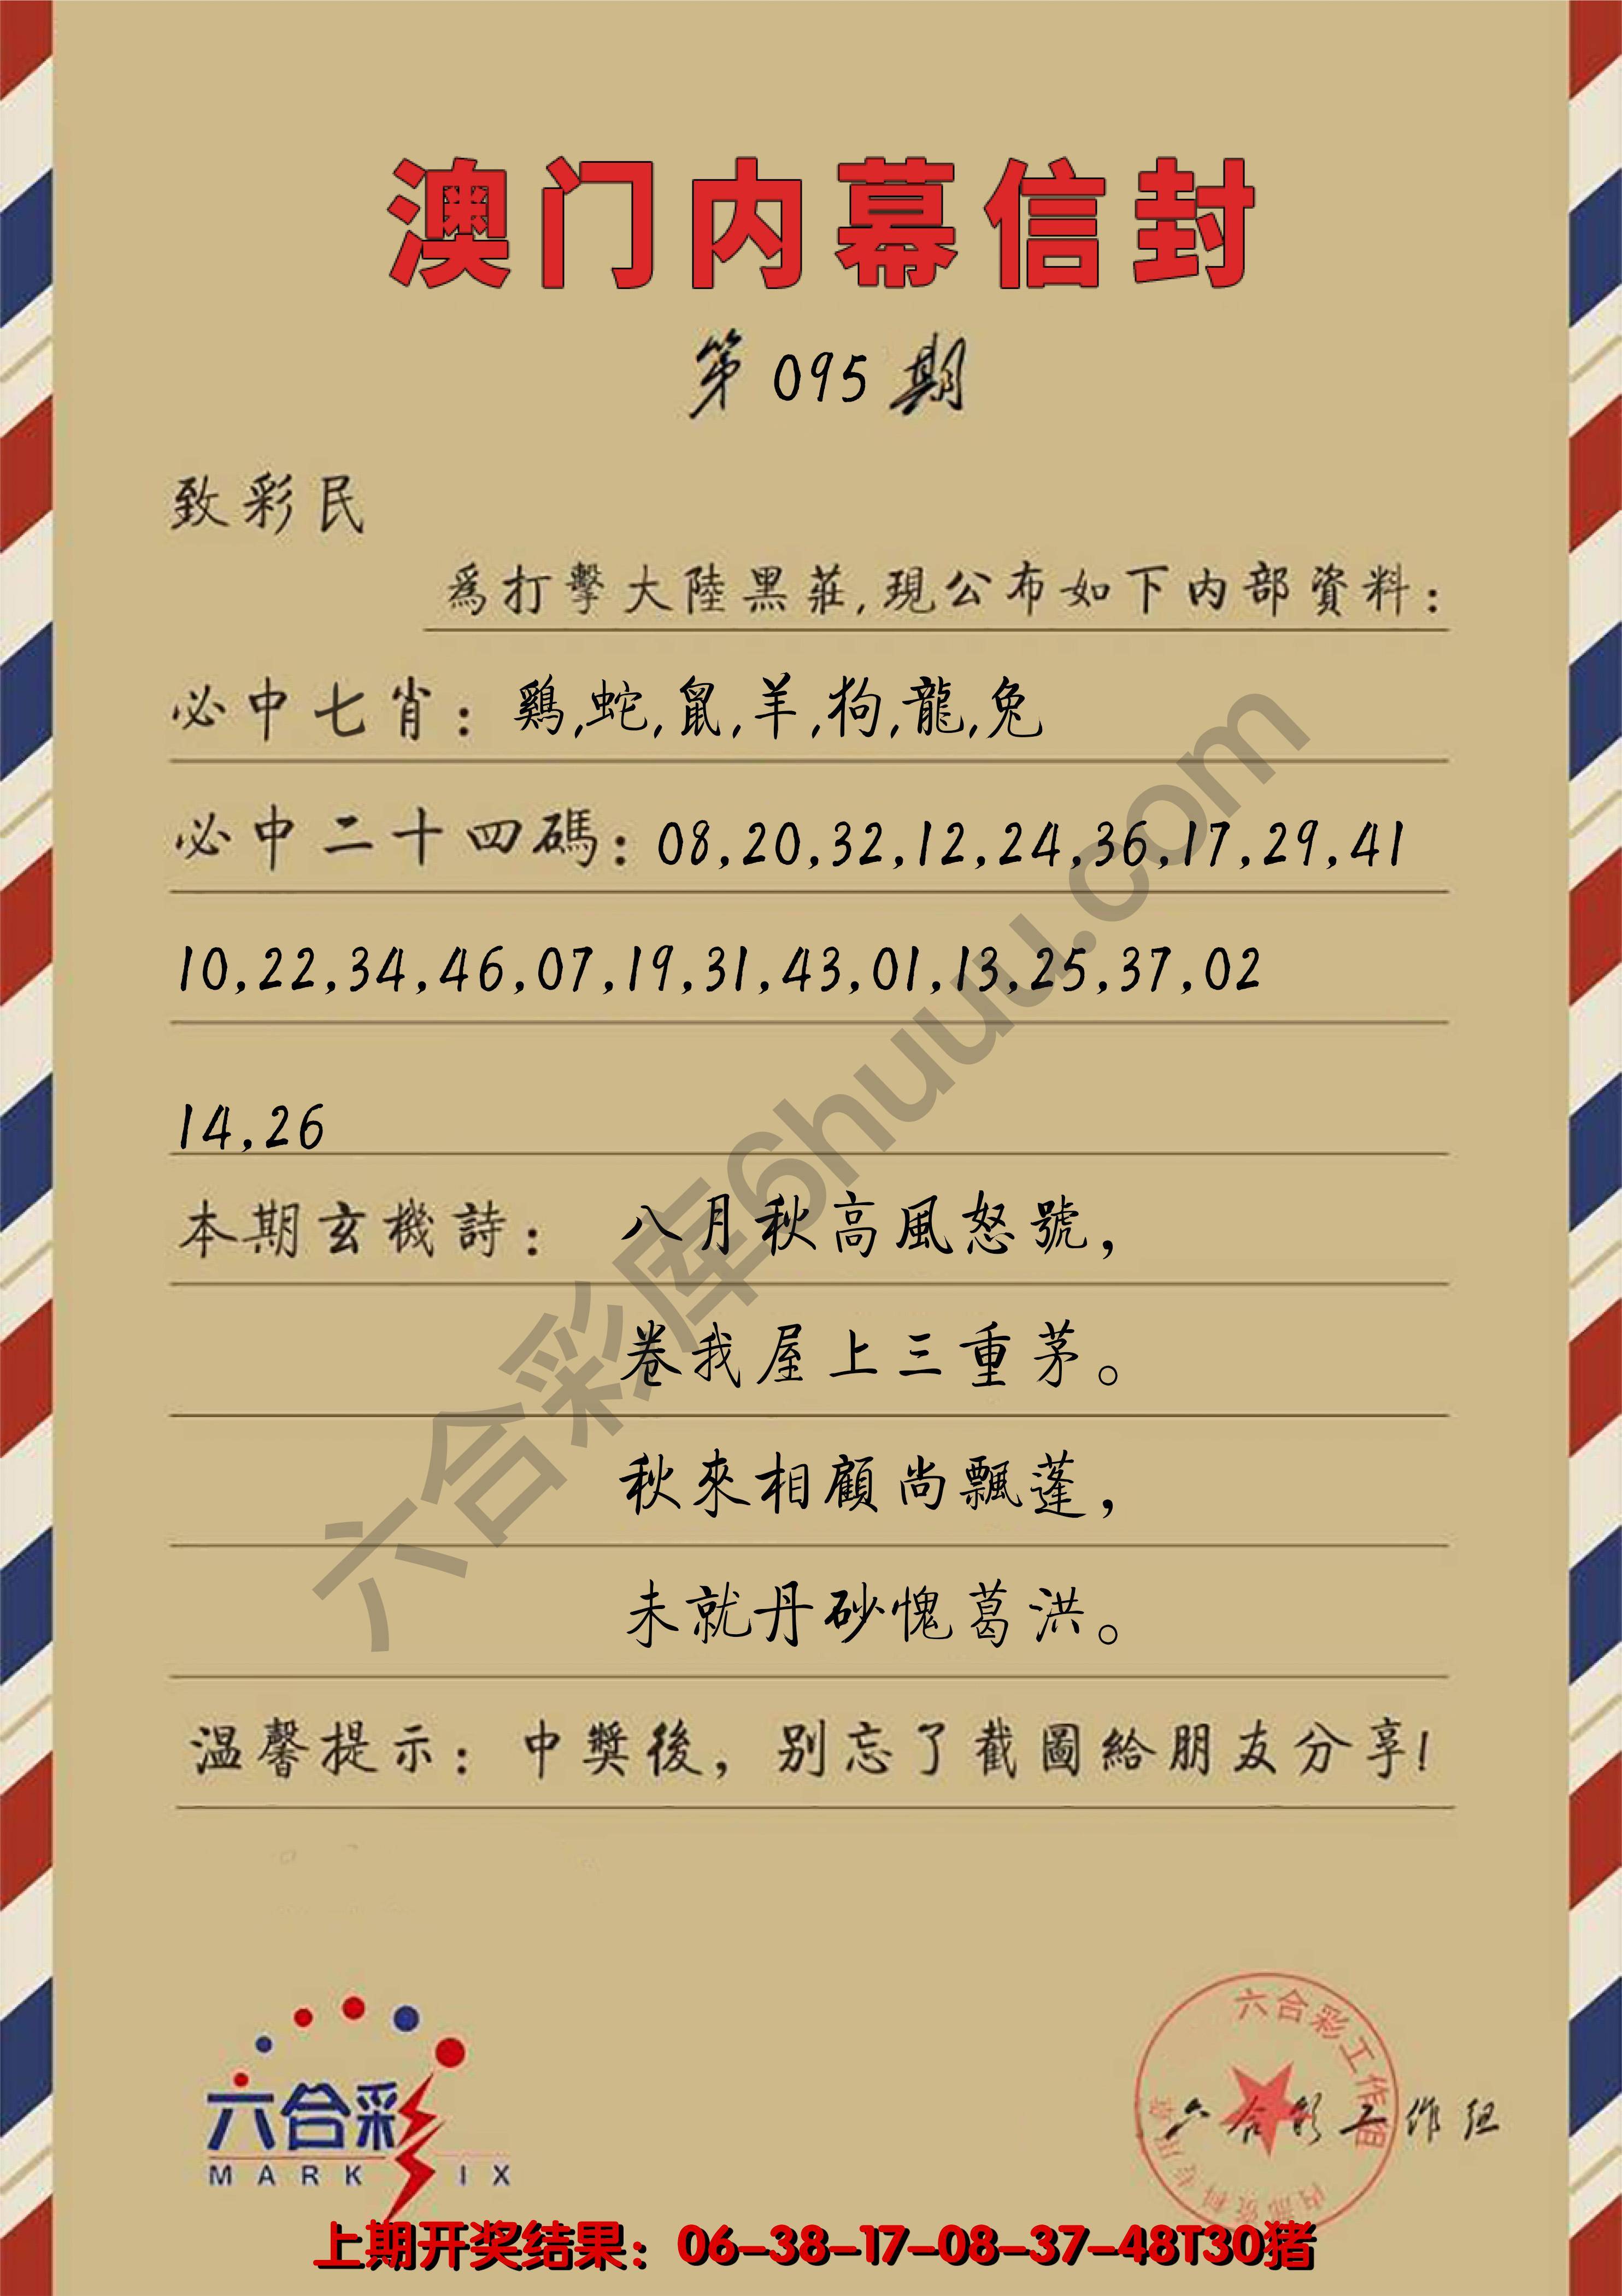 澳门内幕信封
第095期
致彩民
爲打擊大陸黑莊,現公布如下内部資料:
必中七肖: 鷄,蛇,鼠,羊,狗,龍,兔
必中二十四碼: 08,20,32,12,24,36,17,29,41
10,22,34,46,07,19,31,43,01,13,25,37,02
14,26
本期玄機詩: 八月秋高風怒號,
卷我屋上三重茅。
秋來相顧尚飄蓬,
未就丹砂愧葛洪。
温馨提示: 中獎後, 别忘了截圖給朋友分享!
六合彩库6huuu.com
六合彩
MARK IX
六合彩工作组
内部资料专用章
六合彩工作组
上期开奖结果: 06-38-17-08-37-48T30猪